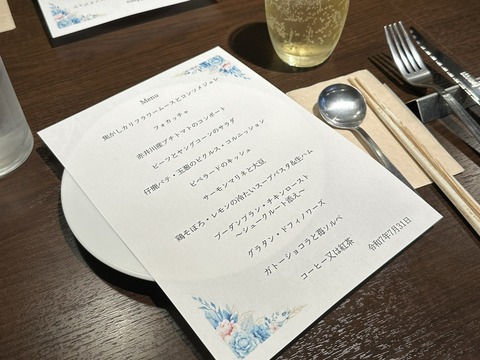 Menu
焦がしカリフラワームースとコンソメジュレ
フォカッチャ
赤井川産プチトマトのコンポート
ビーツとヤングコーンのサラダ
仔鹿パテ・玉葱のピクルス・コルニッション
ピペラードのキッシュ
サーモンマリネと大豆
鶏そぼろ・レモンの冷たいスープパスタ&生ハム
ブーダンブラン・チキンロースト
～シュークルート添え～
グラタン・ドフィノワーズ
ガトーショコラと苺ソルベ
コーヒー又は紅茶
令和7年7月31日